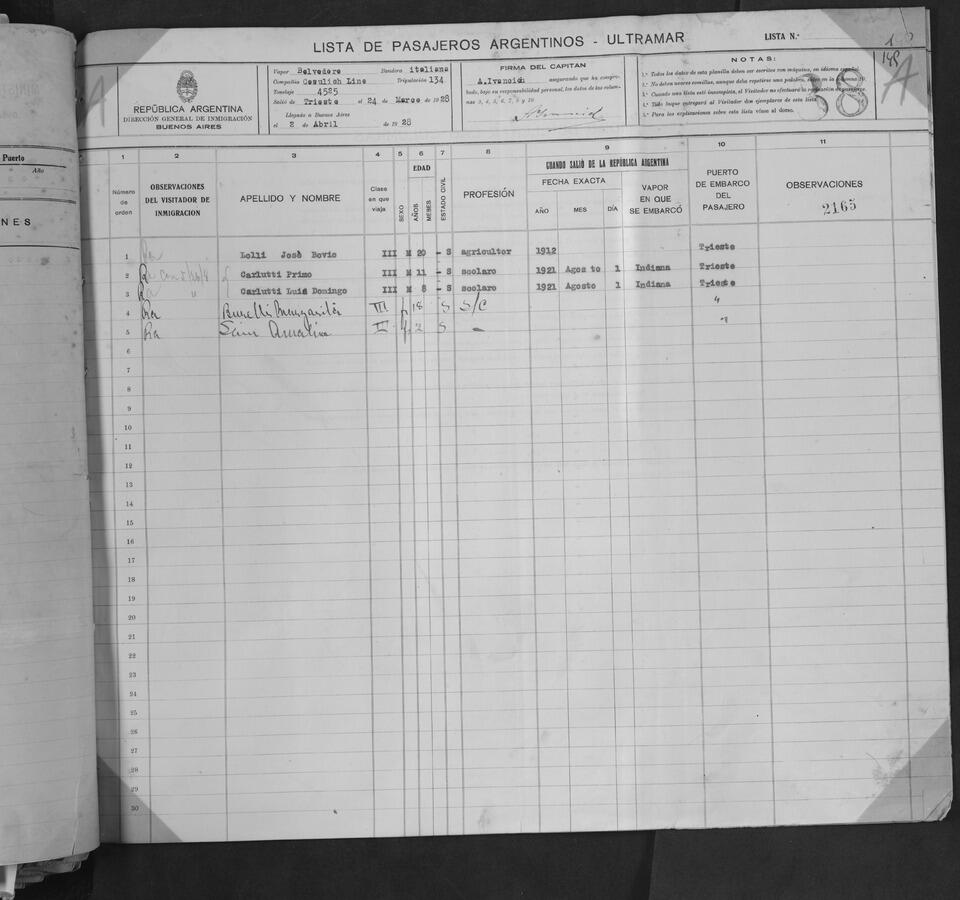 LISTA DE PASAJEROS ARGENTINOS - ULTRAMAR
LISTA N.º
149
A
38
REPÚBLICA ARGENTINA
DIRECCIÓN GENERAL DE INMIGRACIÓN
BUENOS AIRES
Vapor Belvedere Bandera italiana
Compañía Cosulich Line Tripulación 134
Tonelaje 4525
Salió de Trieste el 24 de Marzo de 1928
Llegada a Buenos Aires
el 2 de Abril de 1928
FIRMA DEL CAPITAN
A.Ivancich asegurando que ha comprobado, bajo su responsabilidad personal, los datos de las columnas 3, 4, 5, 6, 7, 8 y 10
NOTAS:
1.º Todos los datos de esta planilla deben ser escritos con máquina, en idioma español.
2.º No deben usarse comillas, aunque deba repetirse una palabra,
3.º Cuando una lista esté incompleta, el Visitador no efectuará la
4.º Todo buque entregará al Visitador dos ejemplares de esta lista
5.º Para las explicaciones sobre esta lista véase al dorso.
Puerto
Año
NES
1 2 3 4 5 6 7 8 9 10 11
Número de orden
OBSERVACIONES DEL VISITADOR DE INMIGRACION
APELLIDO Y NOMBRE
Clase en que viaja
SEXO
EDAD
AÑOS
MESES
ESTADO CIVIL
PROFESIÓN
CUANDO SALIÓ DE LA REPÚBLICA ARGENTINA
FECHA EXACTA
AÑO MES DÍA
VAPOR EN QUE SE EMBARCÓ
PUERTO DE EMBARCO DEL PASAJERO
OBSERVACIONES
2165
1 Lolli José Bovio III M 20 - S agricultor 1912 Trieste
2 Carlutti Primo III M 11 - S scolaro 1921 Agosto 1 Indiana Trieste
3 Carlutti Luis Domingo III M 8 - S scolaro 1921 Agosto 1 Indiana Trieste
4 III f 18 S S/C "
5 III f 2 S - "
6
7
8
9
10
11
12
13
14
15
16
17
18
19
20
21
22
23
24
25
26
27
28
29
30